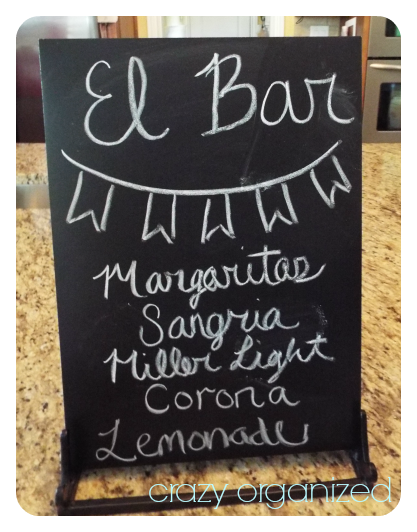 El Bar
Margaritas
Sangria
Miller Light
Corona
Lemonade
crazy organized